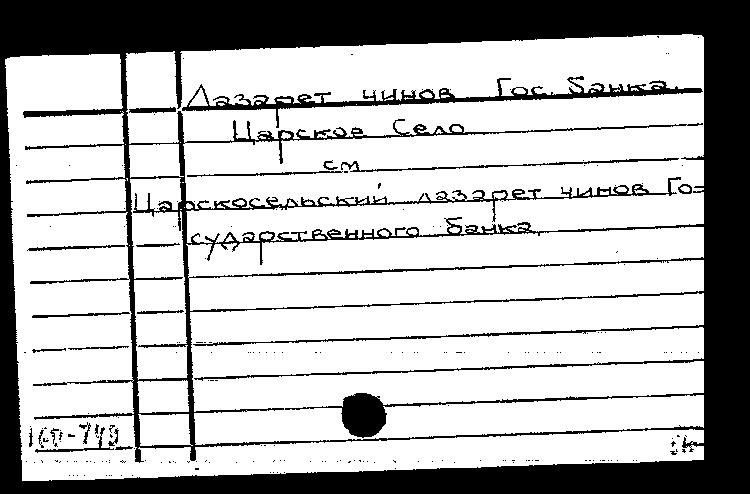 Лазарет чинов Гос. Банка.
Царское Село
см
Царскосельский лазарет чинов Го=
сударственного банка.
160-749